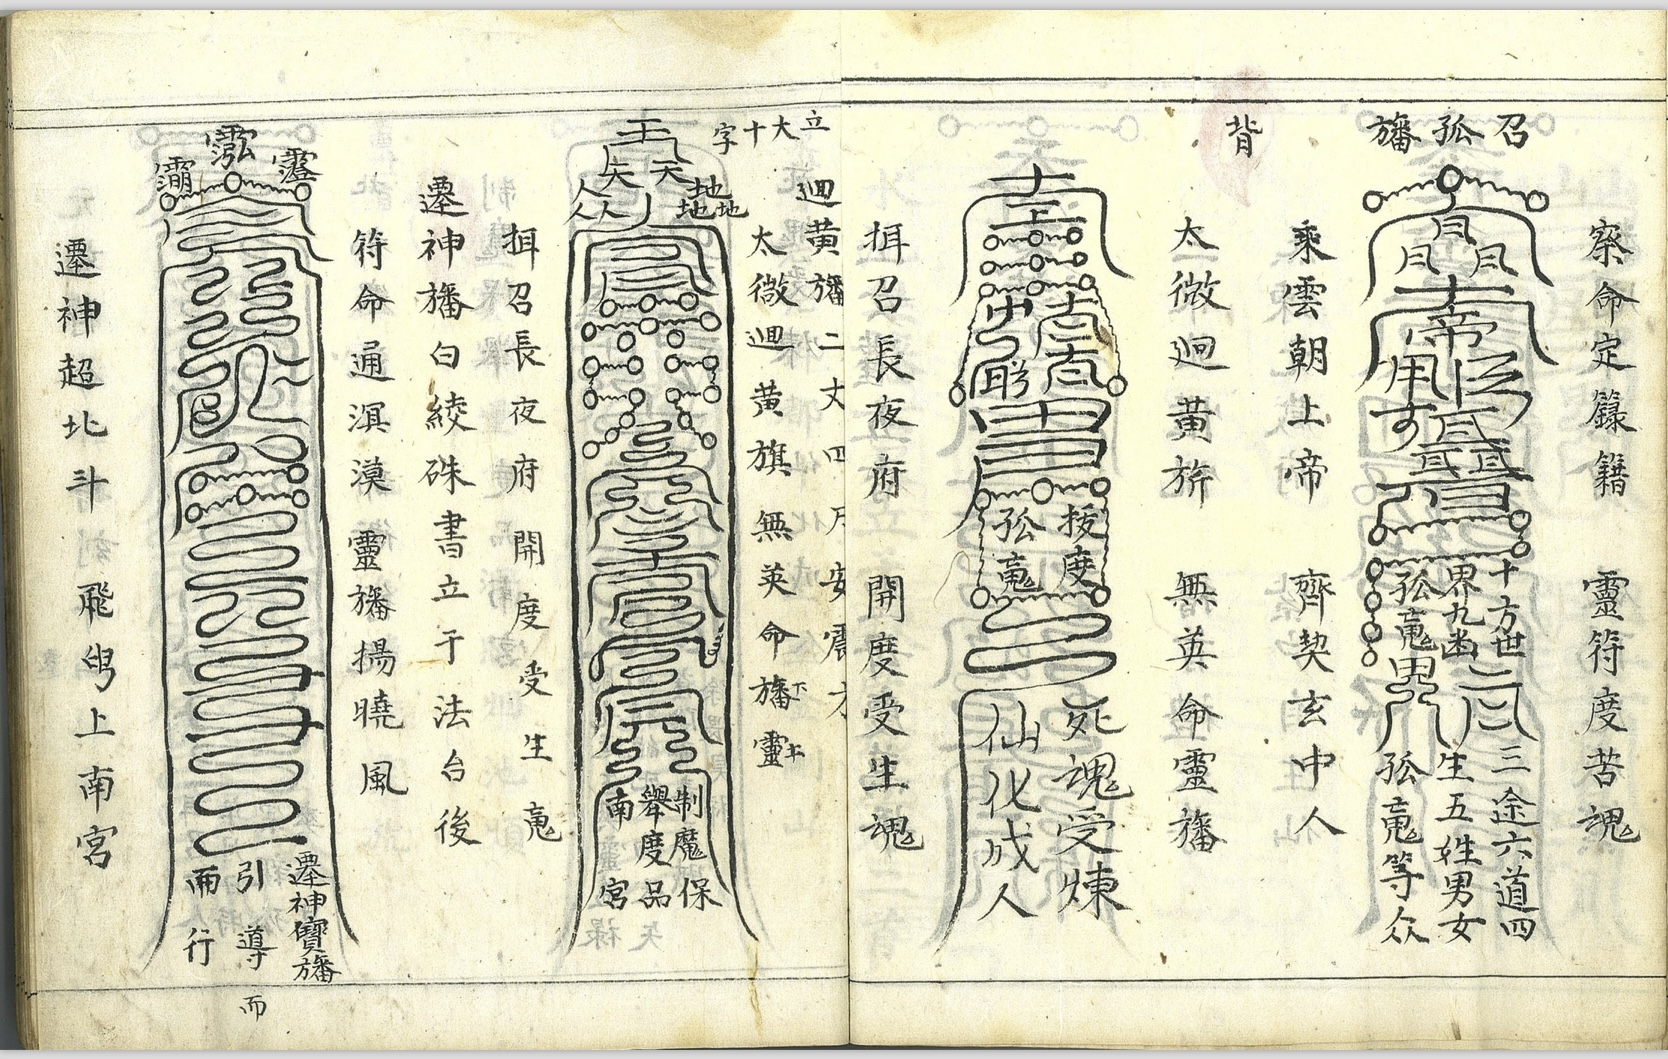 召孤旛
察命定籙籍　靈符度苦魂
十方世
界九幽
孤䰟
三途六道四
生五姓男女
孤䰟等众
乘雲朝上帝　齊契玄中人
背
太微迴黄旂　無英命靈旛
拔度
孤䰟
死魂受煉
仙化成人
揖召長夜府　開度受生魂
迴黄旛二丈四尺安震方
立大十字
太微迴黄旗無英命旛下靈上
王
天天
人人
地地地
制魔保
舉度品
南宮
揖召長夜府開度受生䰟
遷神旛白綾硃書立于法台後
符命通溟漠靈旛揚曉風
遷神寶旛
引導
而行
而
遷神超北斗飛舄上南宮